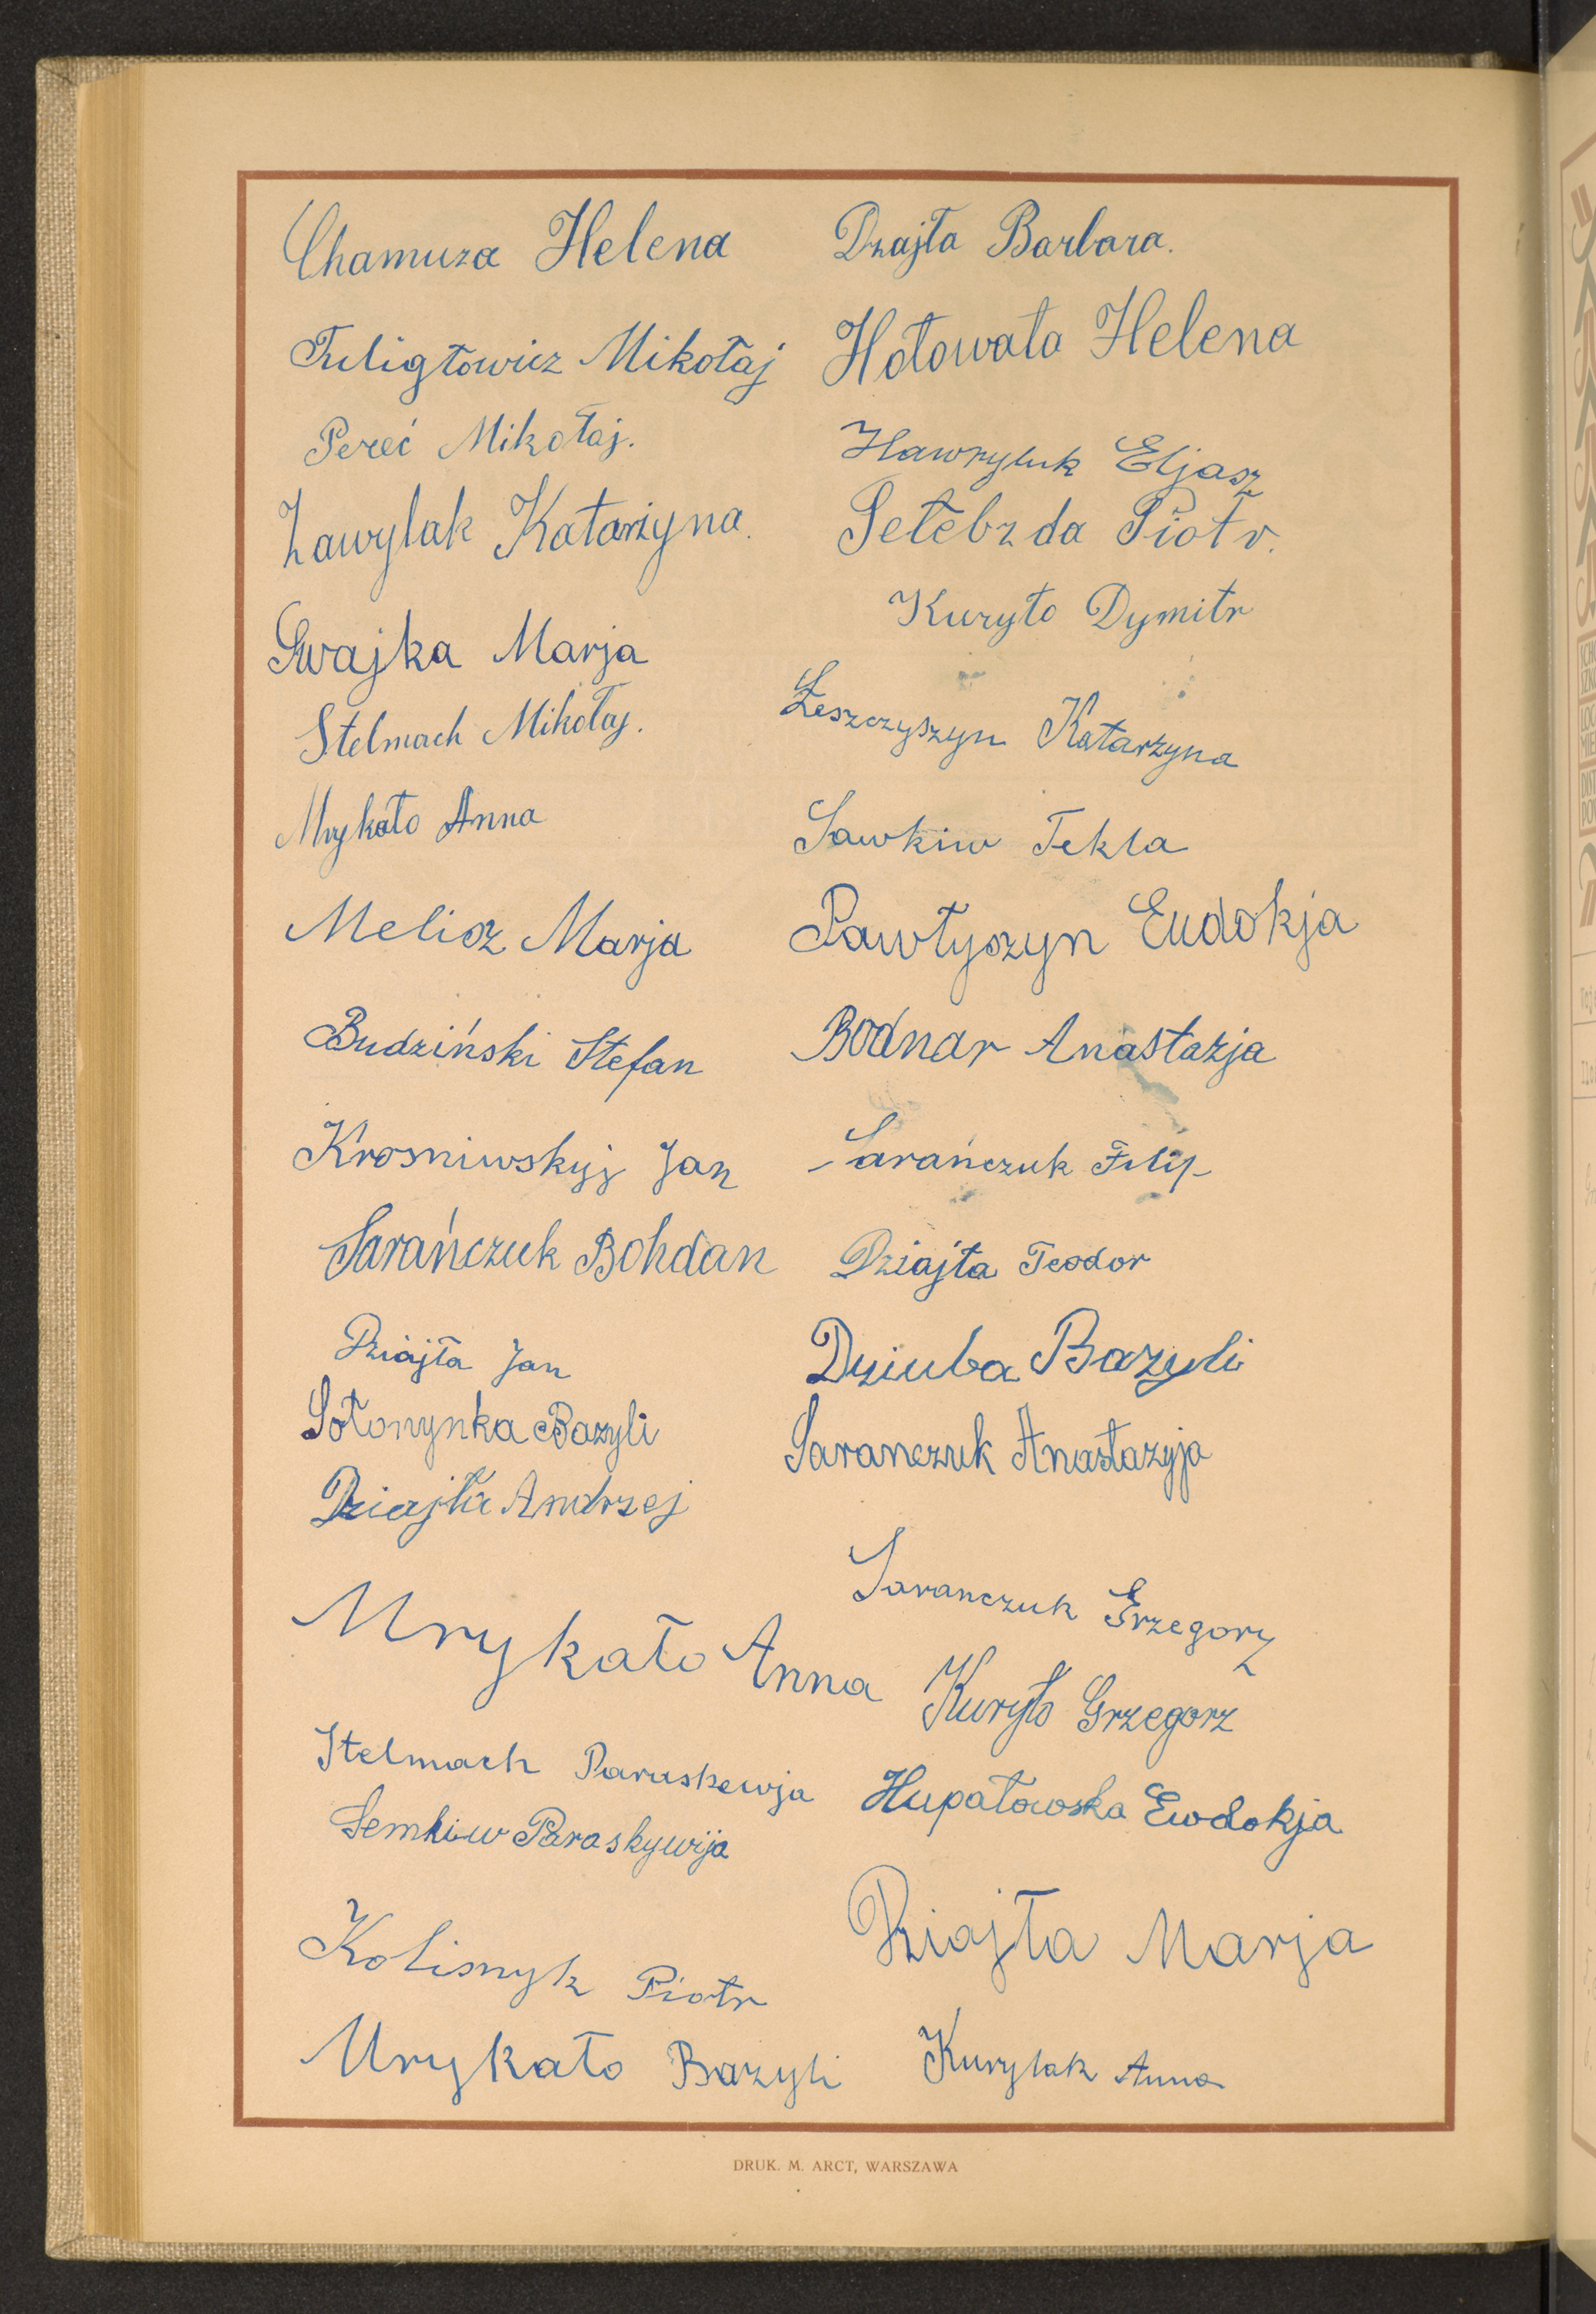 Chamuza Helena
Tuligłowicz Mikołaj
Pereć Mikołaj.
Zawylak Katarzyna.
Swajka Marja
Stelmach Mikołaj.
Mrykało Anna
Melicz Marja
Budziński Stefan
Krosniwskyj Jan
Sarańczuk Bohdan
Dziajła Jan
Sołonynka Bazyli
Dziajła Andrzej
Mrykało Anna
Stelmach Paraskewja
Semkiw Paraskywija
Kolisnyk Piotr
Mrykało Bazyli
Dzajła Barbara.
Hołowała Helena
Hawryluk Eljasz
Piotr.
Kuryło Dymitr
Leszczyszyn Katarzyna
Sawkiw Tekla
Pawłyszyn Eudokja
Bodnar Anastazja
Sarańczuk Filip
Dziajła Teodor
Dziuba Bazyli
Saranczuk Anastazyja
Saranczuk Grzegorz
Kuryło Grzegorz
Hupałowska Ewdokja
Dziajła Marja
Kurylak Anna
DRUK. M. ARCT, WARSZAWA